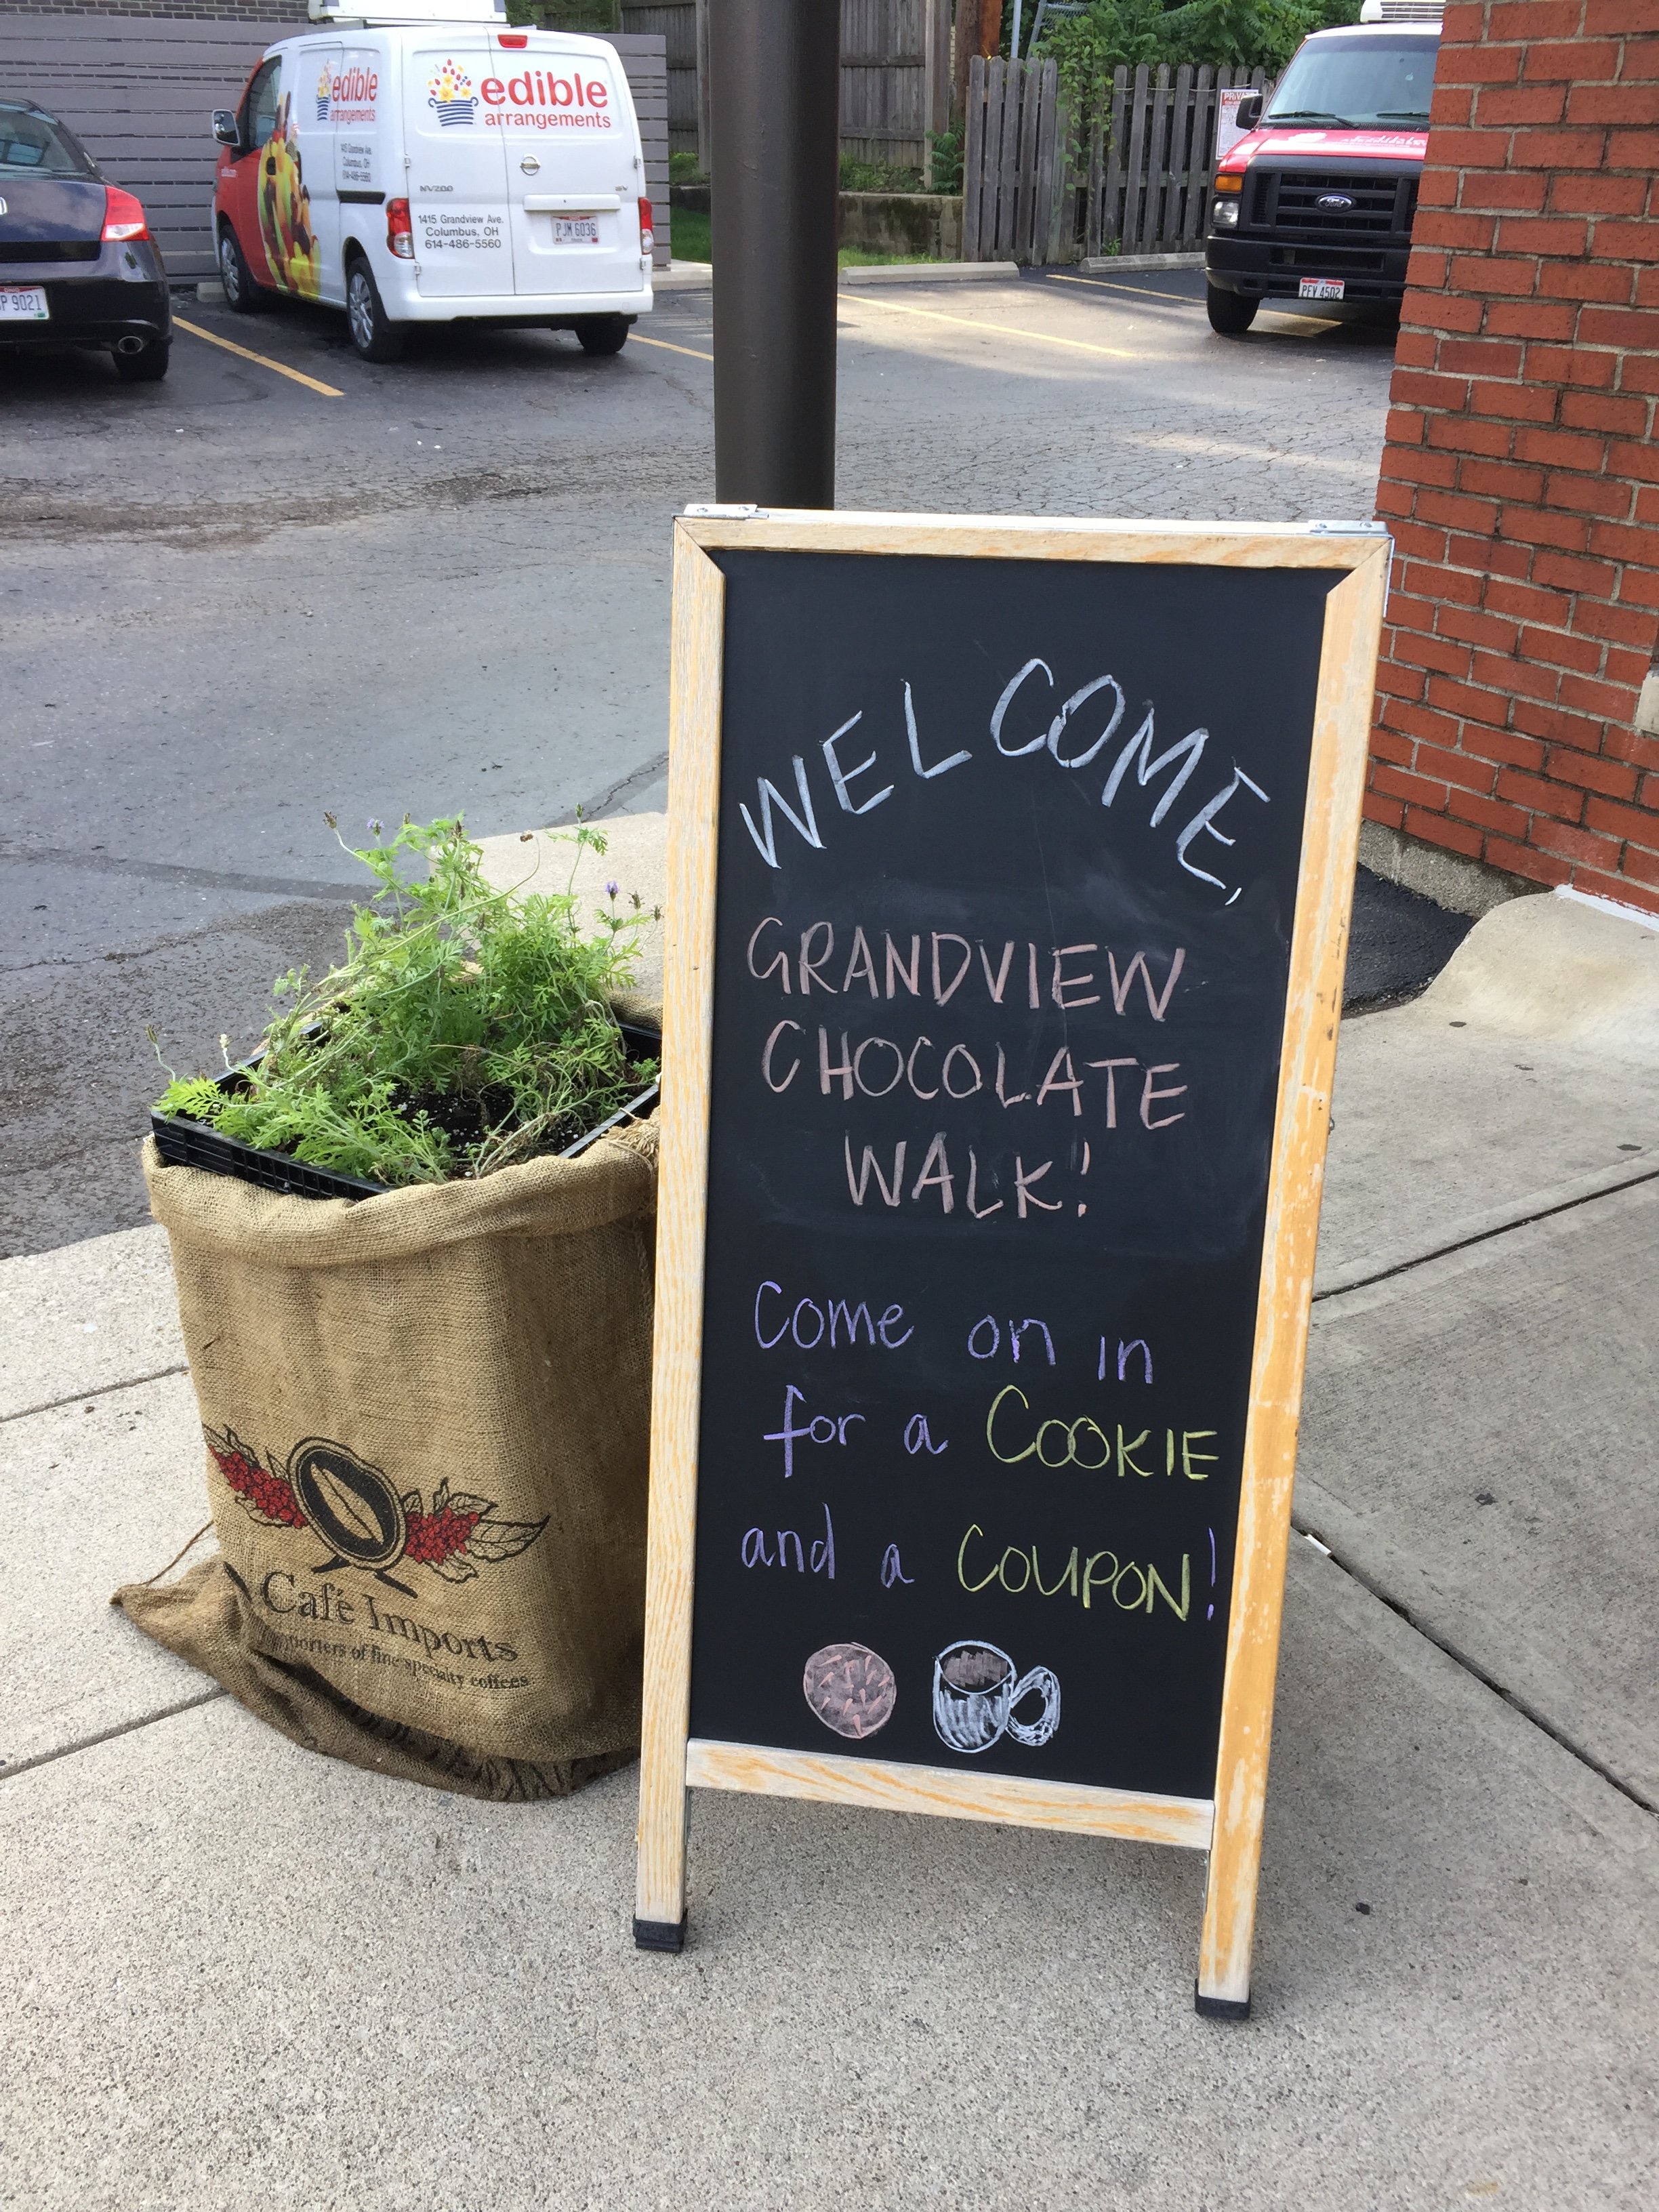 edible
arrangements
1415 Grandview Ave.
Columbus, OH
614-486-5560
edible
arrangements
Columbus, OH
614-486-5560
NV200
PJM 6036
P 9021
PRIVATE
Ford
PEV 4502
WELCOME,
GRANDVIEW
CHOCOLATE
WALK!
Come on in
for a COOKIE
and a COUPON!
Café Imports
importers of fine specialty coffees